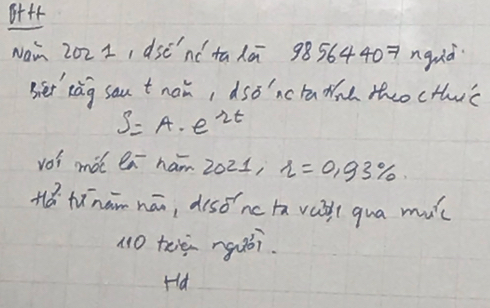 BTTT
Năm 2021, dsố nc ta là 98564407 người.
Biết rằg sau t năm, dsố nc ta tính theo cthức
S = A . e^rt
với mốc là năm 2021, r = 0,93%.
Hỏi từ năm nào, d/số nc ta vượt qua mức
110 triệu người.
Hd